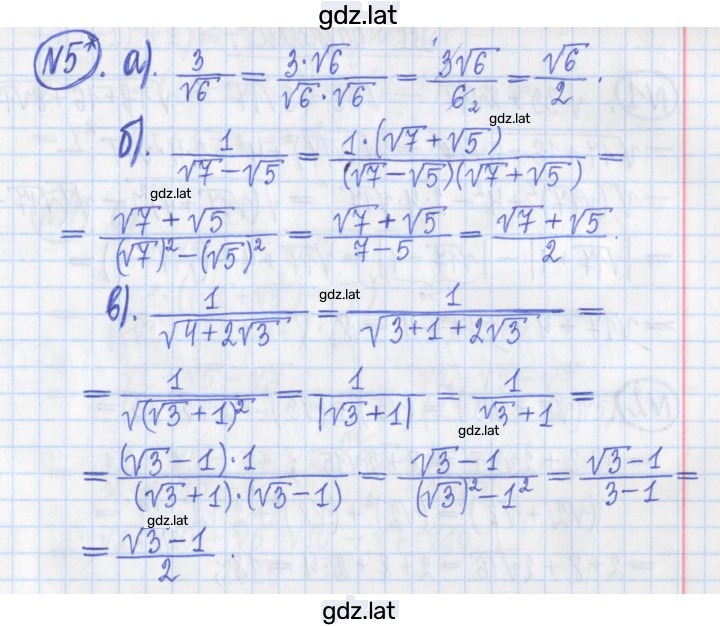 gdz.lat
№5*. а). 3/√6 = (3·√6)/(√6·√6) = 3√6/6 = √6/2.
1 2
gdz.lat
б). 1/(√7 − √5) = (1·(√7 + √5))/((√7 − √5)(√7 + √5)) =
gdz.lat
= (√7 + √5)/((√7)² − (√5)²) = (√7 + √5)/(7 − 5) = (√7 + √5)/2.
в). 1/√(4 + 2√3) = 1/√(3 + 1 + 2√3) =
gdz.lat
= 1/√((√3 + 1)²) = 1/|√3 + 1| = 1/(√3 + 1) =
gdz.lat
= ((√3 − 1)·1)/((√3 + 1)·(√3 − 1)) = (√3 − 1)/((√3)² − 1²) = (√3 − 1)/(3 − 1) =
gdz.lat
= (√3 − 1)/2.
gdz.lat